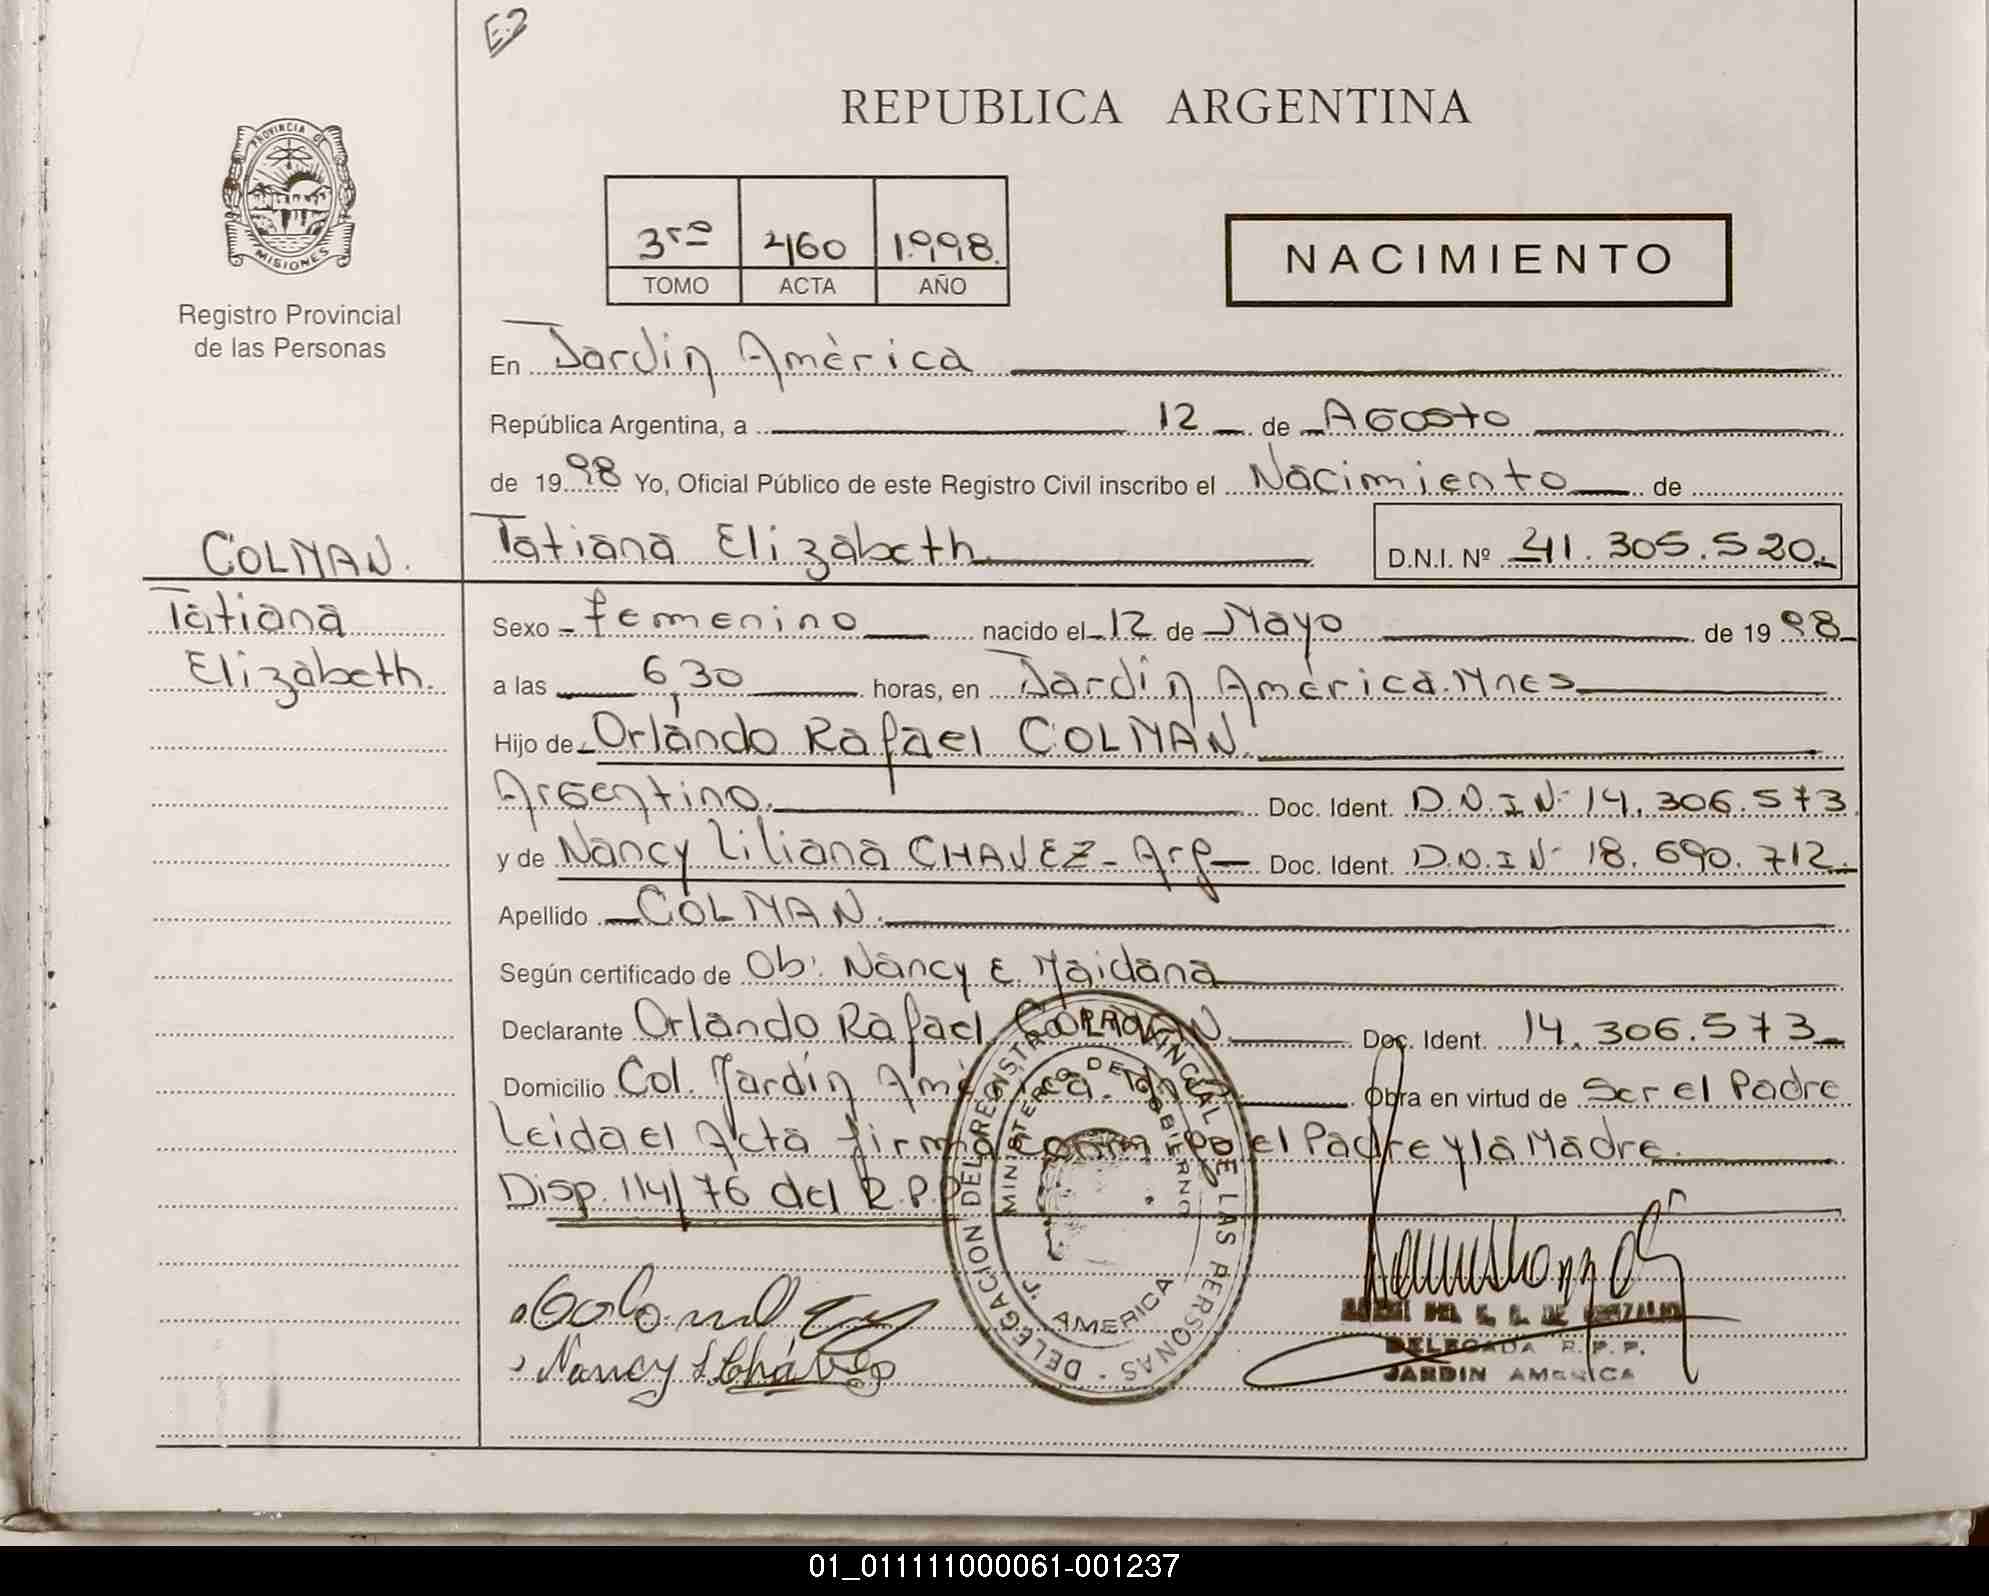 E2
REPUBLICA ARGENTINA
PROVINCIA DE
MISIONES
Registro Provincial
de las Personas
3ro 460 1.998.
TOMO ACTA AÑO
NACIMIENTO
En Jardín América
República Argentina, a 12 de Agosto
de 1998 Yo, Oficial Público de este Registro Civil inscribo el Nacimiento de
COLMAN. Tatiana Elizabeth D.N.I. Nº 41.305.520.
Tatiana Sexo femenino nacido el 12 de Mayo de 1998
Elizabeth. a las 6,30 horas, en Jardín América. Mnes
Hijo de Orlando Rafael COLMAN.
Argentino. Doc. Ident. D.N.I Nº 14.306.573.
y de Nancy Liliana CHAVEZ - Arg Doc. Ident. D.N.I Nº 18.690.712.
Apellido COLMAN.
Según certificado de Ob: Nancy E. Maidana
Declarante Orlando Rafael COLMAN Doc. Ident. 14.306.573
Domicilio Col. Jardín América. Obra en virtud de Ser el Padre
Leida el Acta firma conmigo el Padre y la Madre.
Disp. 114/76 del R.P.P
DELEGACION DEL REGISTRO PROVINCIAL DE LAS PERSONAS
MINISTERIO DE GOBIERNO
J. AMERICA
Nancy L Chávez
DE GONZALEZ
DELEGADA R. P. P.
JARDIN AMERICA
01_011111000061-001237